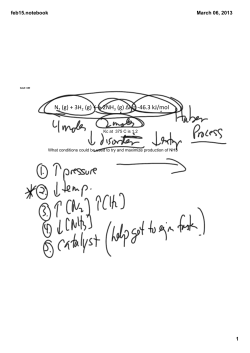 feb15.notebook March 06, 2013
N₂ (g) + 3H₂ (g) 2NH₃ (g) -46.3 kJ/mol
Haber
4 moles 2 moles
Kc at 375 C is 1.2
Process
↓ disorder ↓ entropy
What conditions could be used to try and maximize production of NH3
① ↑ pressure
* ② ↓ temp.
③ ↑[N₂] ↑[H₂]
④ ↓[NH₃]
⑤ catalyst (help get to eqm faster)
1